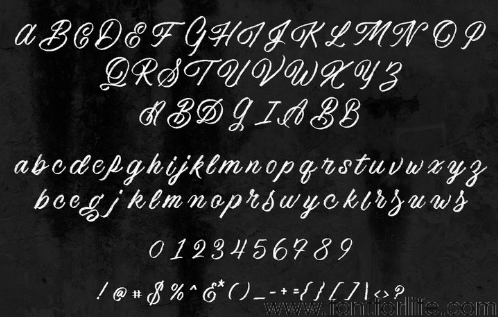 A B C D E F G H I J K L M N O P
Q R S T U V W X Y Z
A B D G I A B B
a b c d e f g h i j k l m n o p q r s t u v w x y z
b c e g j k l m n o p r s u w y c k l r z u w s
0 1 2 3 4 5 6 7 8 9
! @ # $ % ^ & * ( ) _ - + = { } [ ] \ < > ?
www.fontforlife.com